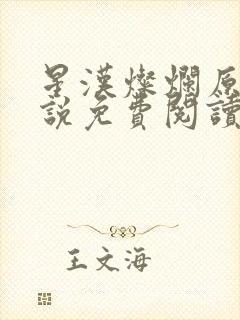 星漢燦爛原
說免費閱讀
王文海